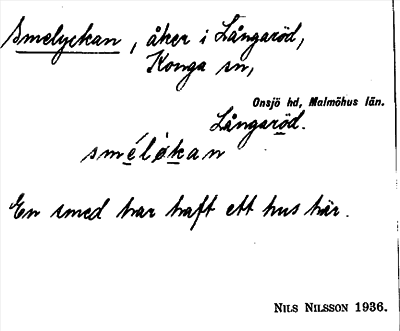 Smelyckan, åker i Långaröd,
Konga sn,
Onsjö hd, Malmöhus län.
Långaröd.
sméløkan
En smed har haft ett hus här.
NILS NILSSON 1936.